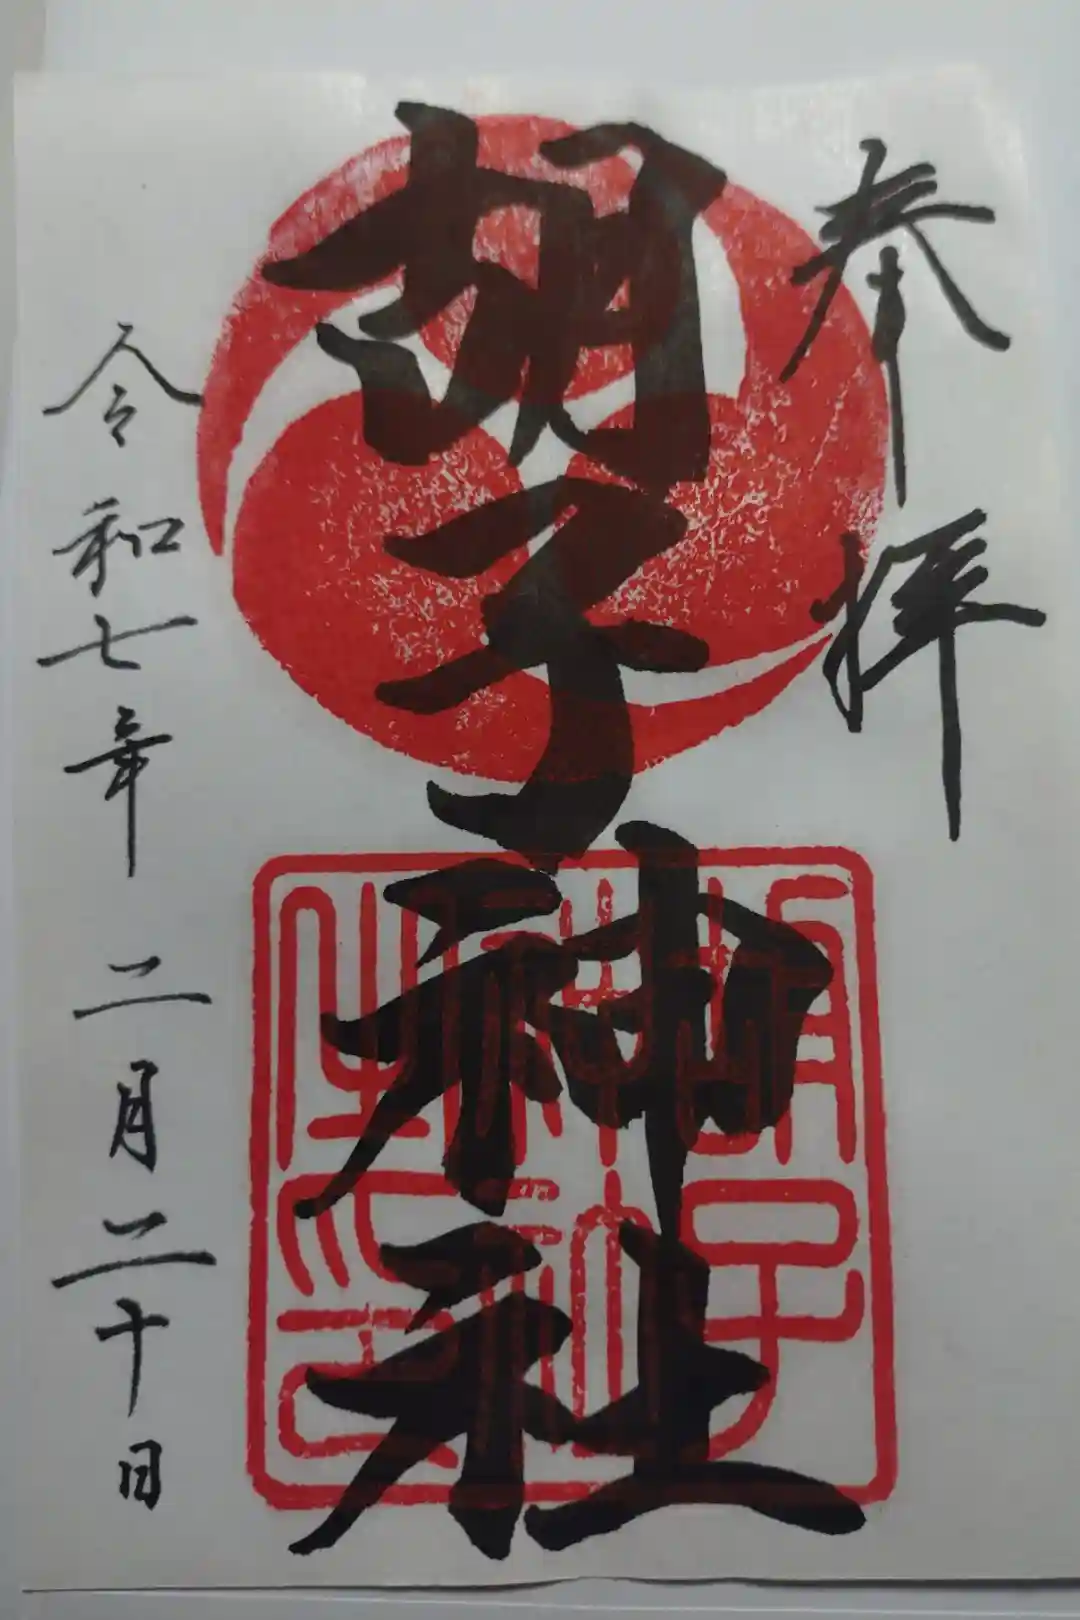 奉拝
胡子神社
胡子神社之印
令和七年二月二十日